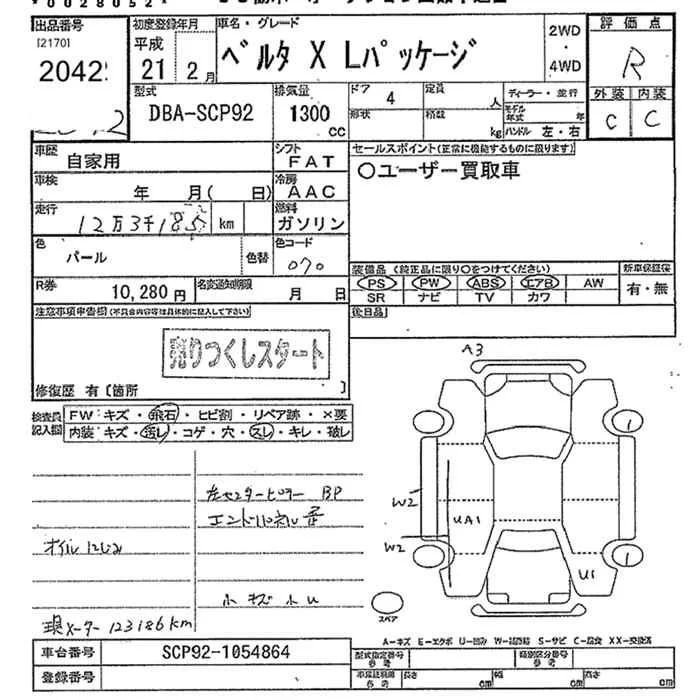 *0028052*
出品番号
[2170]
2042
初度登録年月
平成
21 2月
車名・グレード
ベルタ X Lパッケージ
2WD
・
4WD
評価点
R
外装 内装
C C
型式
DBA-SCP92
排気量
1300
cc
ドア
4
定員
人
形状
積載
kg
ディーラー・並行
モデル年式
年
ハンドル 左・右
車歴
自家用
シフト
FAT
セールスポイント(正常に機能するものに限ります)
○ユーザー買取車
車検
年 月( 日)
冷房
AAC
走行
12万3千185 km
燃料
ガソリン
色
パール
色替
色コード
070
R券
10,280円
名変通知期限
月 日
装備品 (純正品に限り○をつけてください)
新車保証書
PS PW ABS エアB AW
有・無
SR ナビ TV カワ
後日品
注意事項申告欄(不具合内容等は具体的に記入して下さい)
売りつくしスタート
修復歴 有〔箇所 〕
検査員
記入欄
FW:キズ・飛石・ヒビ割・リペア跡・×要
内装:キズ・汚レ・コゲ・穴・スレ・キレ・破レ
左センターピラー BP
エンドパネル 歪
オイルにじみ
小キズ小U
現メーター 123186km
A3
W2
W2
UA1
U1
1
1
スペア
A-キズ E-エクボ U-凹み W-補修跡 S-サビ C-腐食 XX-交換済
車台番号
SCP92-1054864
登録番号
型式指定番号
参考
類別区分番号
参考
車庫証明用
参考
長さ
cm
幅
cm
高さ
cm